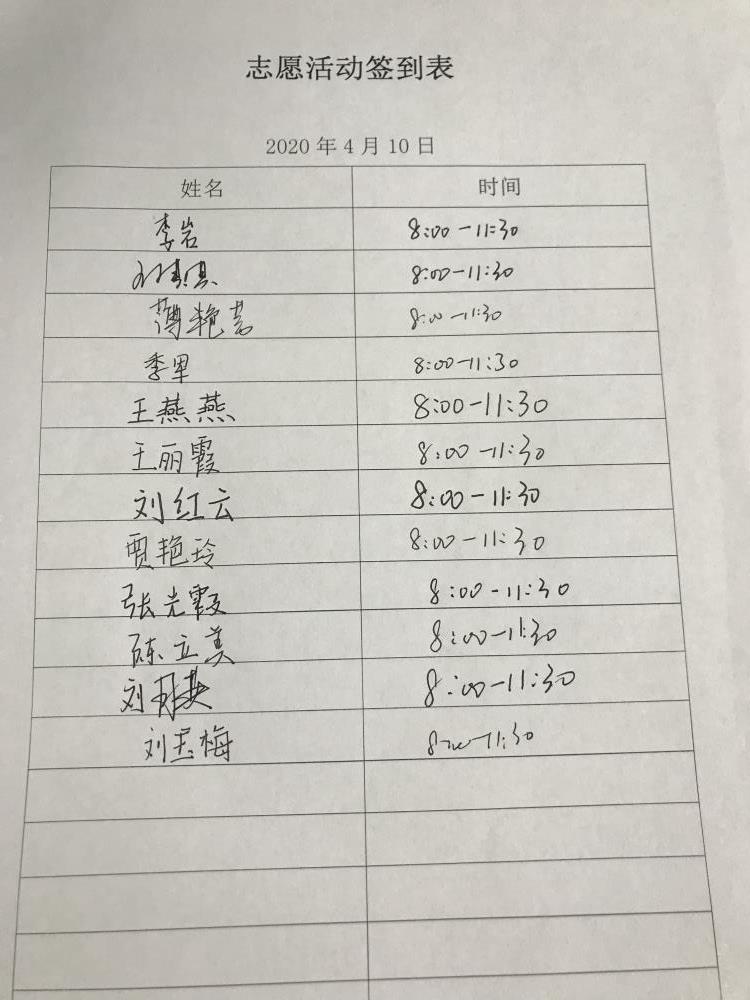 志愿活动签到表
2020 年 4 月 10 日
姓名 时间
李岩 8:00-11:30
8:00-11:30
薄艳 8:00-11:30
季 8:00-11:30
王燕燕 8:00-11:30
王丽霞 8:00-11:30
刘红云 8:00-11:30
贾艳玲 8:00-11:30
张光霞 8:00-11:30
陈立美 8:00-11:30
刘 8:00-11:30
刘玉梅 8:00-11:30